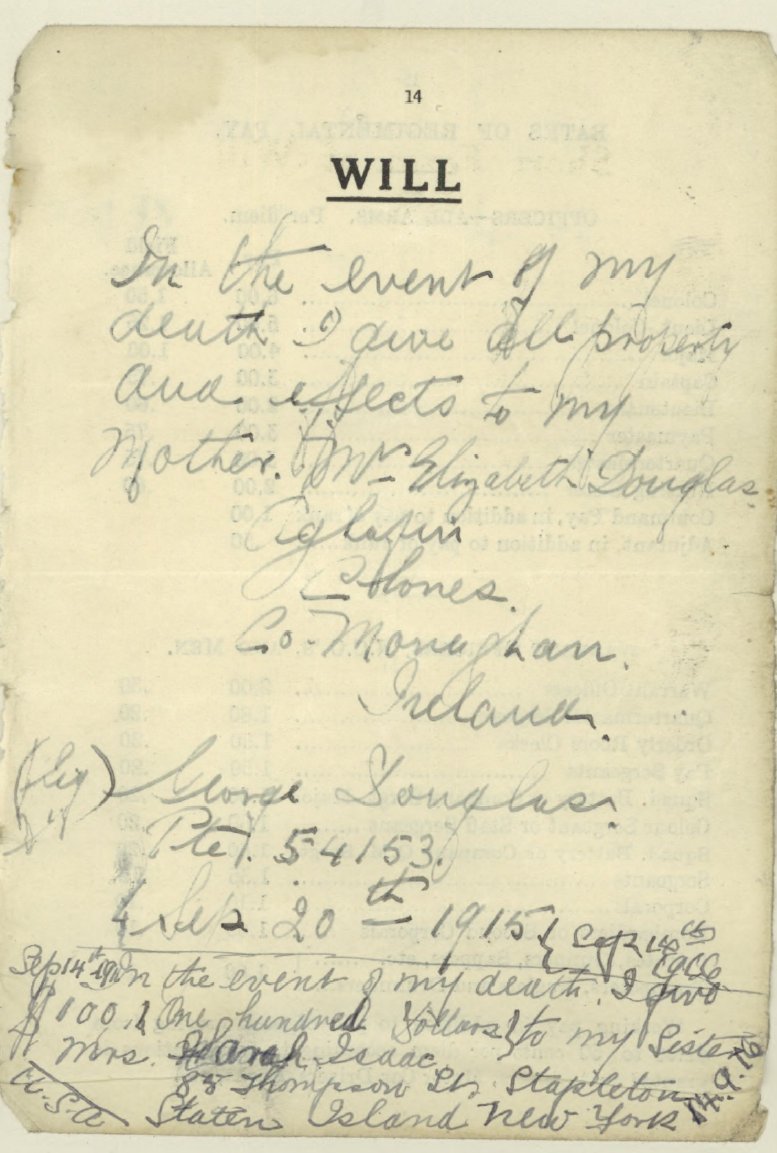 14
WILL
In the event of my
death I give all property
and effects to my
Mother. Mrs Elizabeth Douglas
Clones.
Co. Monaghan.
Ireland.
(Sig) George Douglas.
Pte. 54153.
Sep 20th 1915
Sept 14th
1916
Sep 14th In the event of my death. I give
$100. { One hundred dollars } to my Sister
Mrs. Sarah Isaac
85 Thompson St. Stapleton
U.S.A Staten Island New York
14.9.16